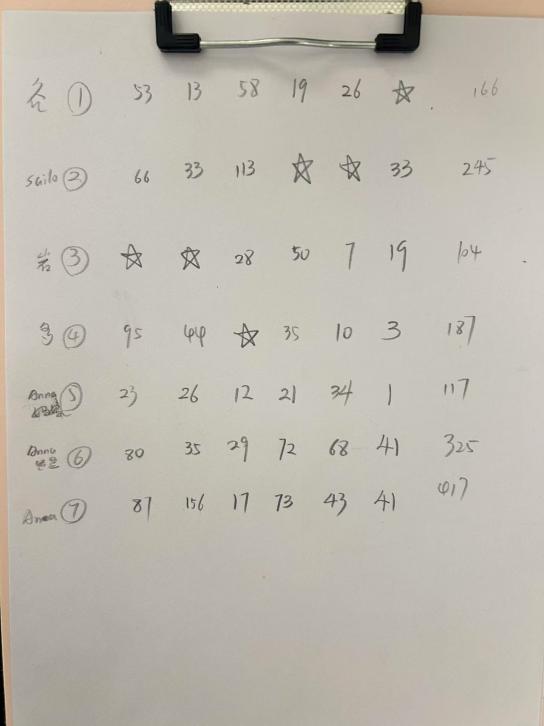 ① 53 13 58 19 26 ☆ 166
Sailo ② 66 33 113 ☆ ☆ 33 245
岩 ③ ☆ ☆ 28 50 7 19 104
④ 95 44 ☆ 35 10 3 187
Anna ⑤ 23 26 12 21 34 1 117
Anna ⑥ 80 35 29 72 68 41 325
Anna ⑦ 87 156 17 73 43 41 417